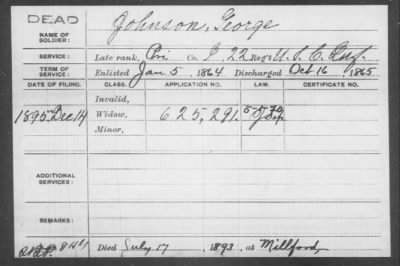 DEAD
NAME OF SOLDIER:
Johnson, George
SERVICE:
Late rank, Pri Co. I, 22 Reg't U.S.C. Inf.
TERM OF SERVICE:
Enlisted Jan 5, 1864 Discharged Oct 16, 1865
DATE OF FILING. CLASS. APPLICATION NO. LAW. CERTIFICATE NO.
Invalid,
1895 Dec 14 Widow, 625,291.
Minor,
ADDITIONAL SERVICES:
REMARKS:
Died July 17, 1893, at Millford,